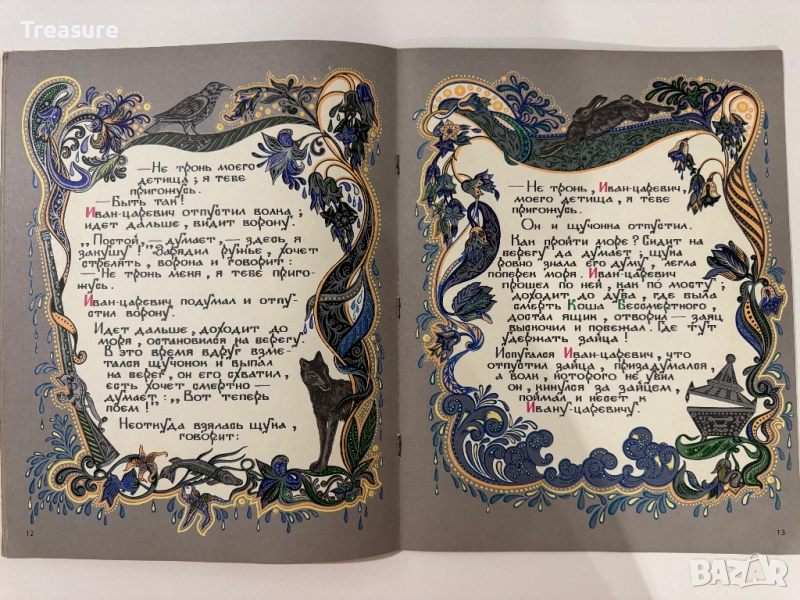 Treasure
—Не тронь моего
детища; я тебе
пригожусь.
—Быть так!
Иван-царевич отпустил волка;
идет дальше, видит ворону.
„Постой,—думает,— здесь я
закушу!" Зарядил ружье, хочет
стрелять, ворона и говорит:
—Не тронь меня, я тебе приго-
жусь.
Иван-царевич подумал и отпу-
стил ворону.
Идет дальше, доходит до
моря, остановился на берегу.
В это время вдруг взме-
тался щучонок и выпал
на берег, он его схватил,
есть хочет смертно—
думает: „Вот теперь
поем!"
Неоткуда взялась щука,
говорит:
12
—Не тронь, Иван-царевич,
моего детища, я тебе
пригожусь.
Он и щучонка отпустил.
Как пройти море? Сидит на
берегу да думает; щука
ровно знала его думу, легла
поперек моря. Иван-царевич
прошел по ней, как по мосту;
доходит до дуба, где была
смерть Коща Бессмертного,
достал ящик, отворил — заяц
выскочил и побежал. Где тут
удержать зайца!
Испугался Иван-царевич, что
отпустил зайца, призадумался,
а волк, которого не убил
он, кинулся за зайцем,
поймал и несет к
Ивану-царевичу.
13
BAZAR